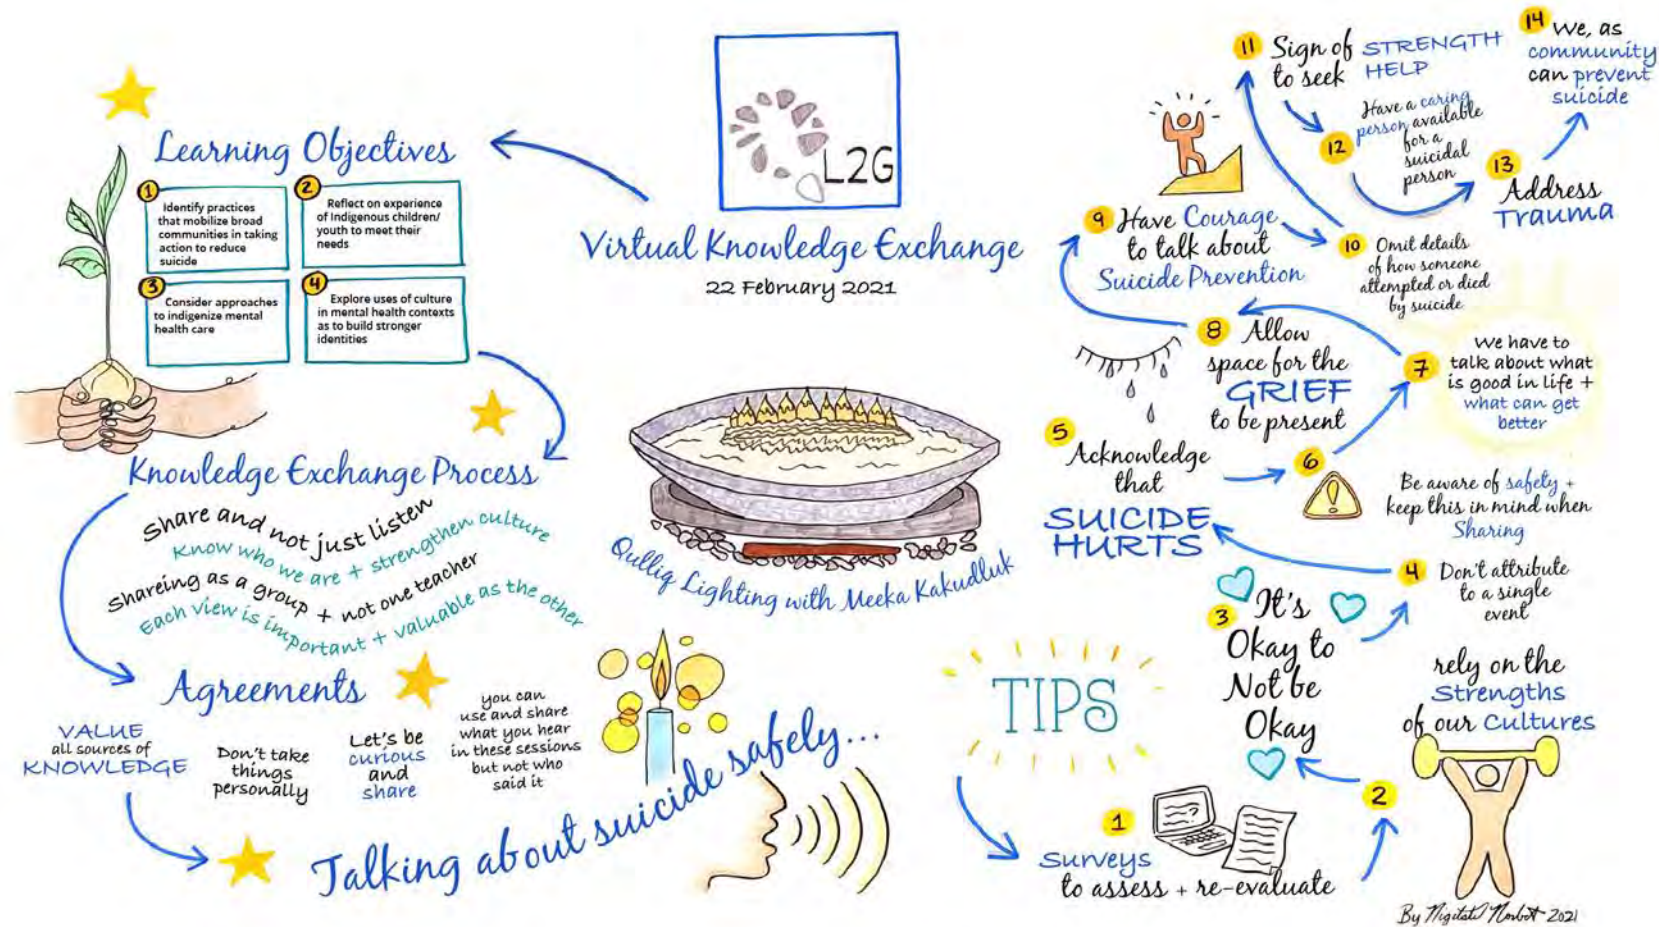 L2G
Virtual Knowledge Exchange
22 February 2021
Learning Objectives
1
Identify practices
that mobilize broad
communities in taking
action to reduce
suicide
2
Reflect on experience
of Indigenous children/
youth to meet their
needs
3
Consider approaches
to indigenize mental
health care
4
Explore uses of culture
in mental health contexts
as to build stronger
identities
Knowledge Exchange Process
Share and not just listen
Know who we are + strengthen culture
Shareing as a group + not one teacher
Each view is important + valuable as the other
Agreements
VALUE
all sources of
KNOWLEDGE
Don't take
things
personally
Let's be
curious
and
share
you can
use and share
what you hear
in these sessions
but not who
said it
Talking about suicide safely...
Qulliq Lighting with Meeka Kakudluk
TIPS
1
Surveys
to assess + re-evaluate
2
rely on the
Strengths
of our Cultures
3
It's
Okay to
Not be
Okay
4
Don't attribute
to a single
event
5
Acknowledge
that
SUICIDE
HURTS
6
!
Be aware of safety +
keep this in mind when
Sharing
7
We have to
talk about what
is good in life +
what can get
better
8 Allow
space for the
GRIEF
to be present
9 Have Courage
to talk about
Suicide Prevention
10 Omit details
of how someone
attempted or died
by suicide
11 Sign of STRENGTH
to seek HELP
12
Have a caring
person available
for a
suicidal
person
13
Address
Trauma
14 We, as
community
can prevent
suicide
By
2021